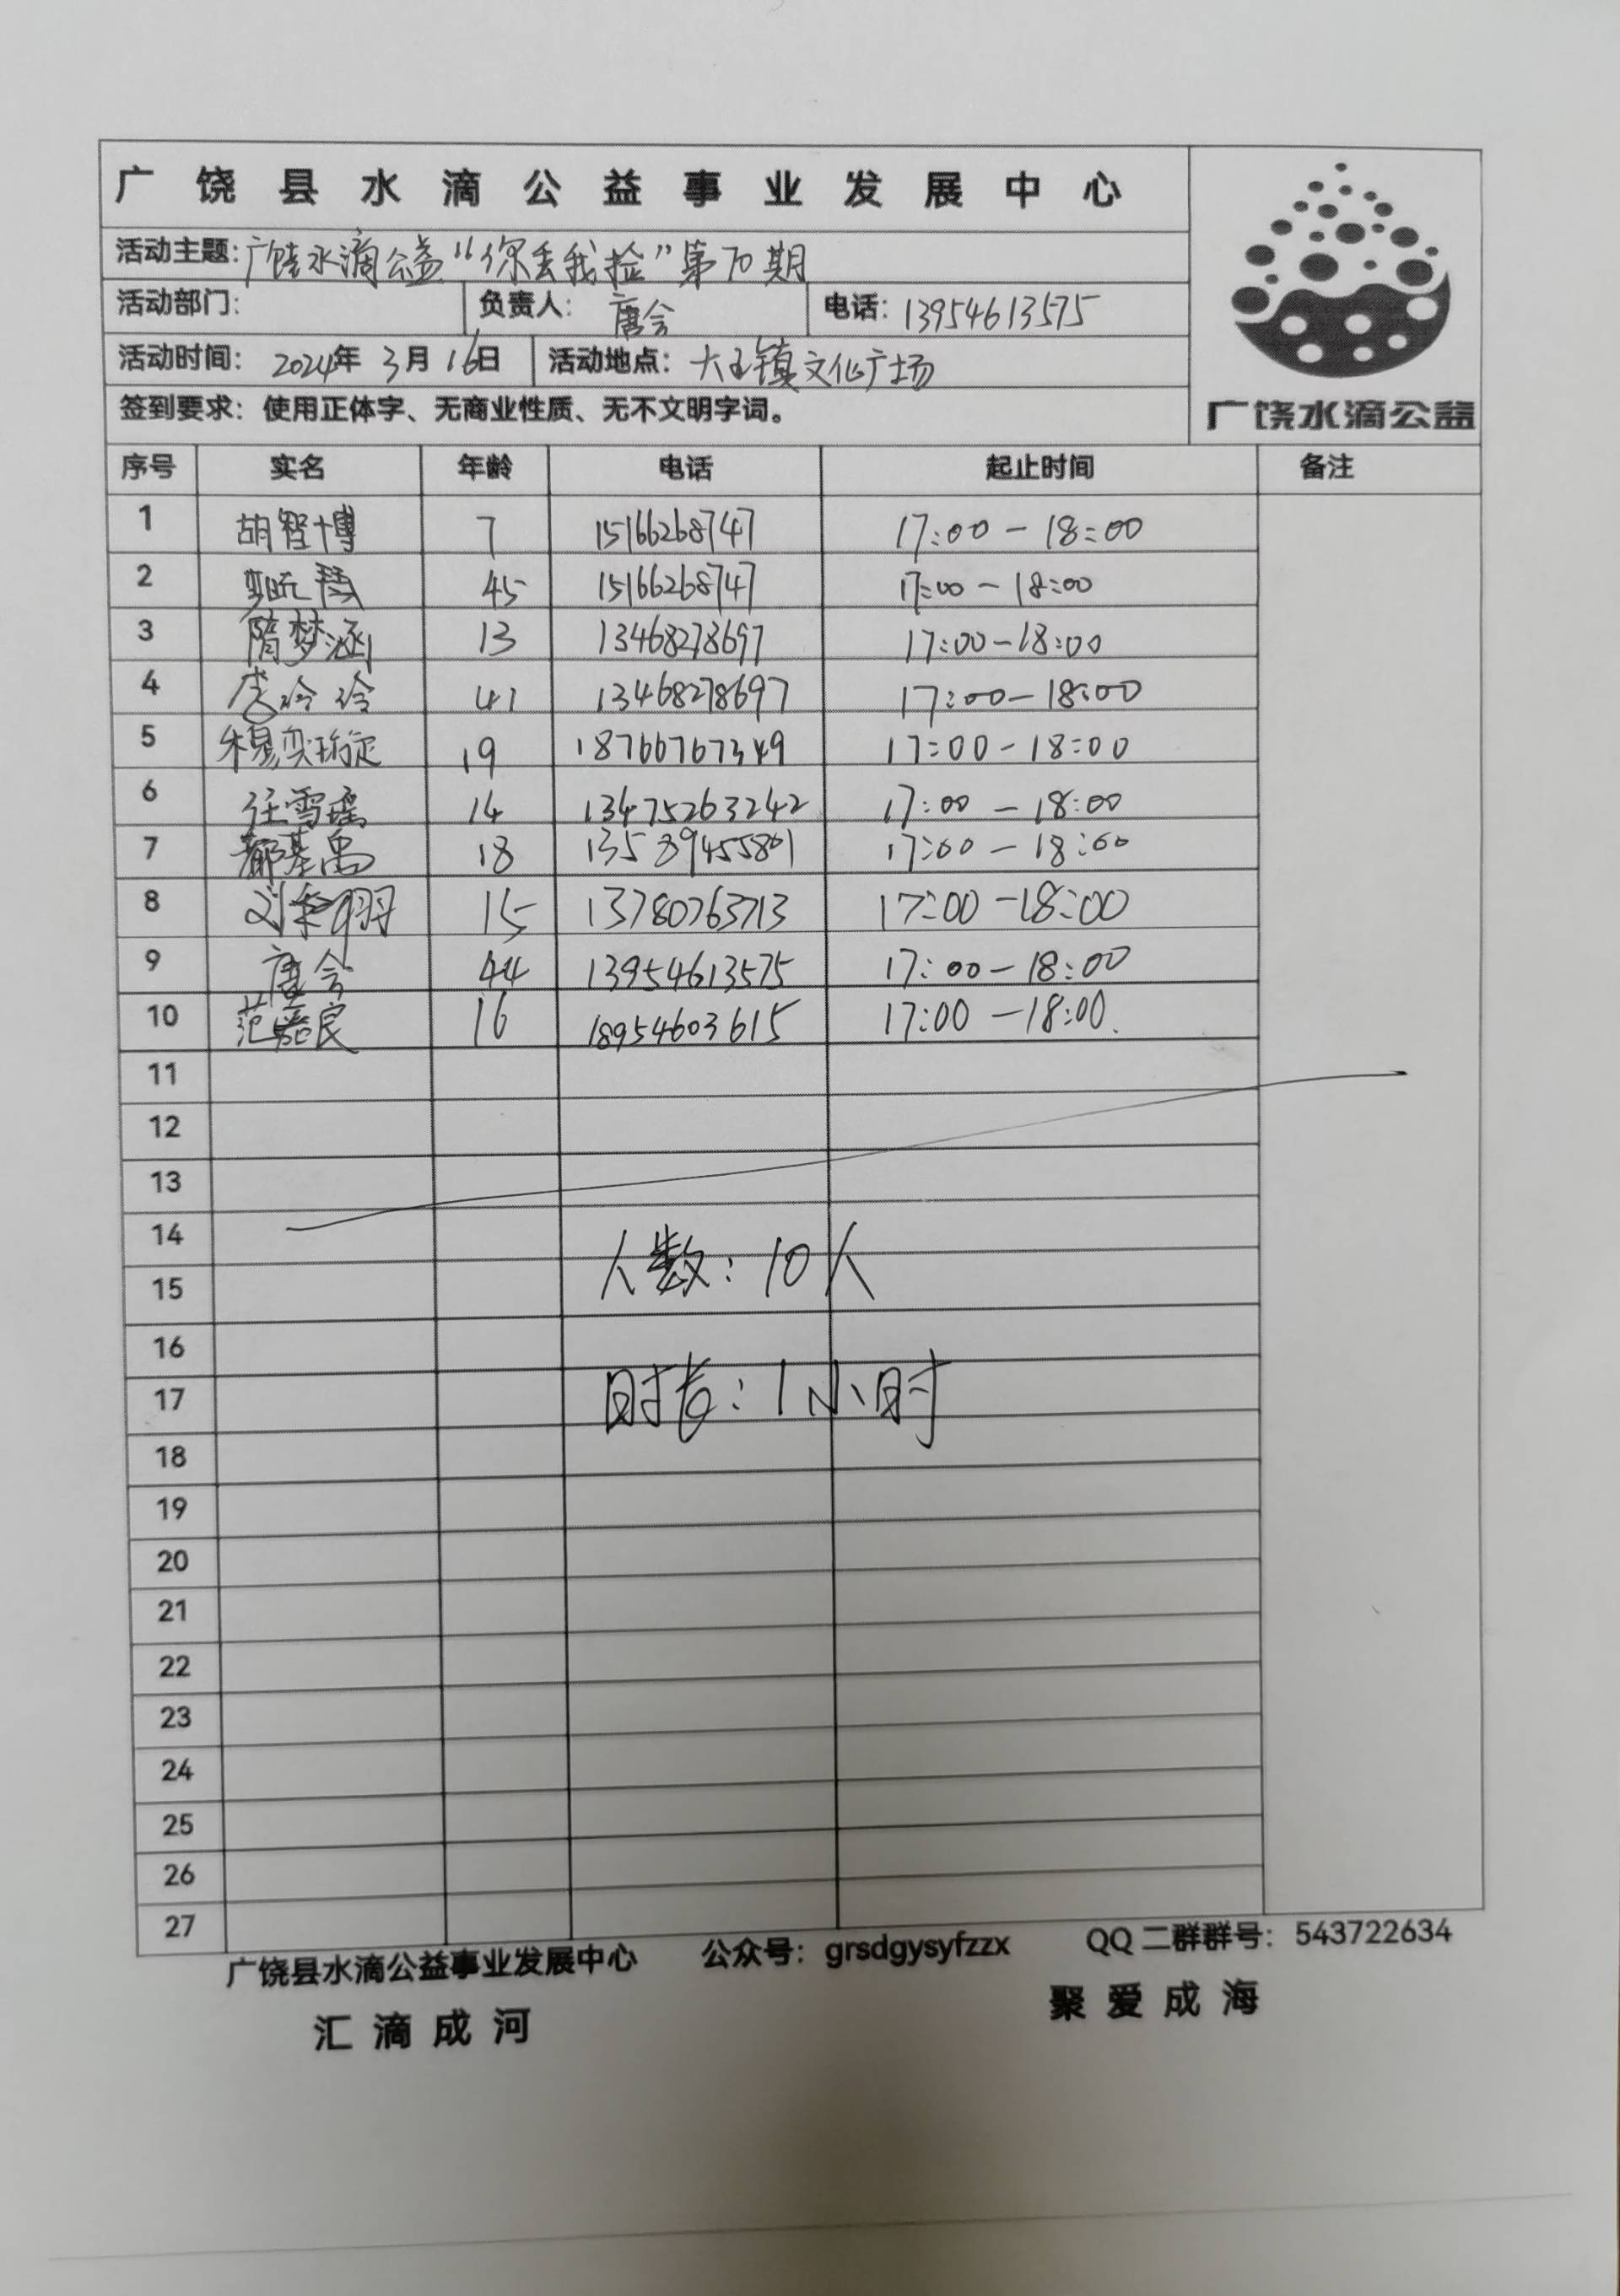 广饶县水滴公益事业发展中心
活动主题: 广饶水滴公益“你丢我捡”第70期
活动部门: 负责人: 唐会 电话: 13954613575
活动时间: 2024年 3月 16日 活动地点: 大王镇文化广场
签到要求: 使用正体字、无商业性质、无不文明字词。
广饶水滴公益
序号 实名 年龄 电话 起止时间 备注
1 胡智博 7 15166268747 17:00-18:00
2 45 15166268747 17:00-18:00
3 隋梦涵 13 13468278697 17:00-18:00
4 李玲玲 41 13468278697 17:00-18:00
5 19 18766767349 17:00-18:00
6 任雪瑶 14 13475263242 17:00-18:00
7 都基禹 18 17:00-18:00
8 15 13780763713 17:00-18:00
9 唐会 44 13954613575 17:00-18:00
10 16 18954603615 17:00-18:00.
11
12
13
14
人数: 10人
15
16
17 时长: 1小时
18
19
20
21
22
23
24
25
26
27
广饶县水滴公益事业发展中心 公众号: grsdgysyfzzx QQ二群群号: 543722634
汇滴成河 聚爱成海